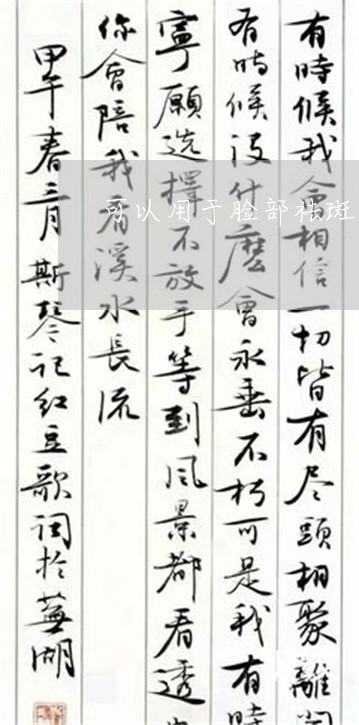 有時候我会相信一切皆有尽頭相聚離
有時候没什麽會永垂不朽可是我有時
寧願选擇不放手等到风景都看透
你會陪我看溪水長流
甲午春三月斯琴记红豆歌词於蕪湖
可以用于脸部祛斑